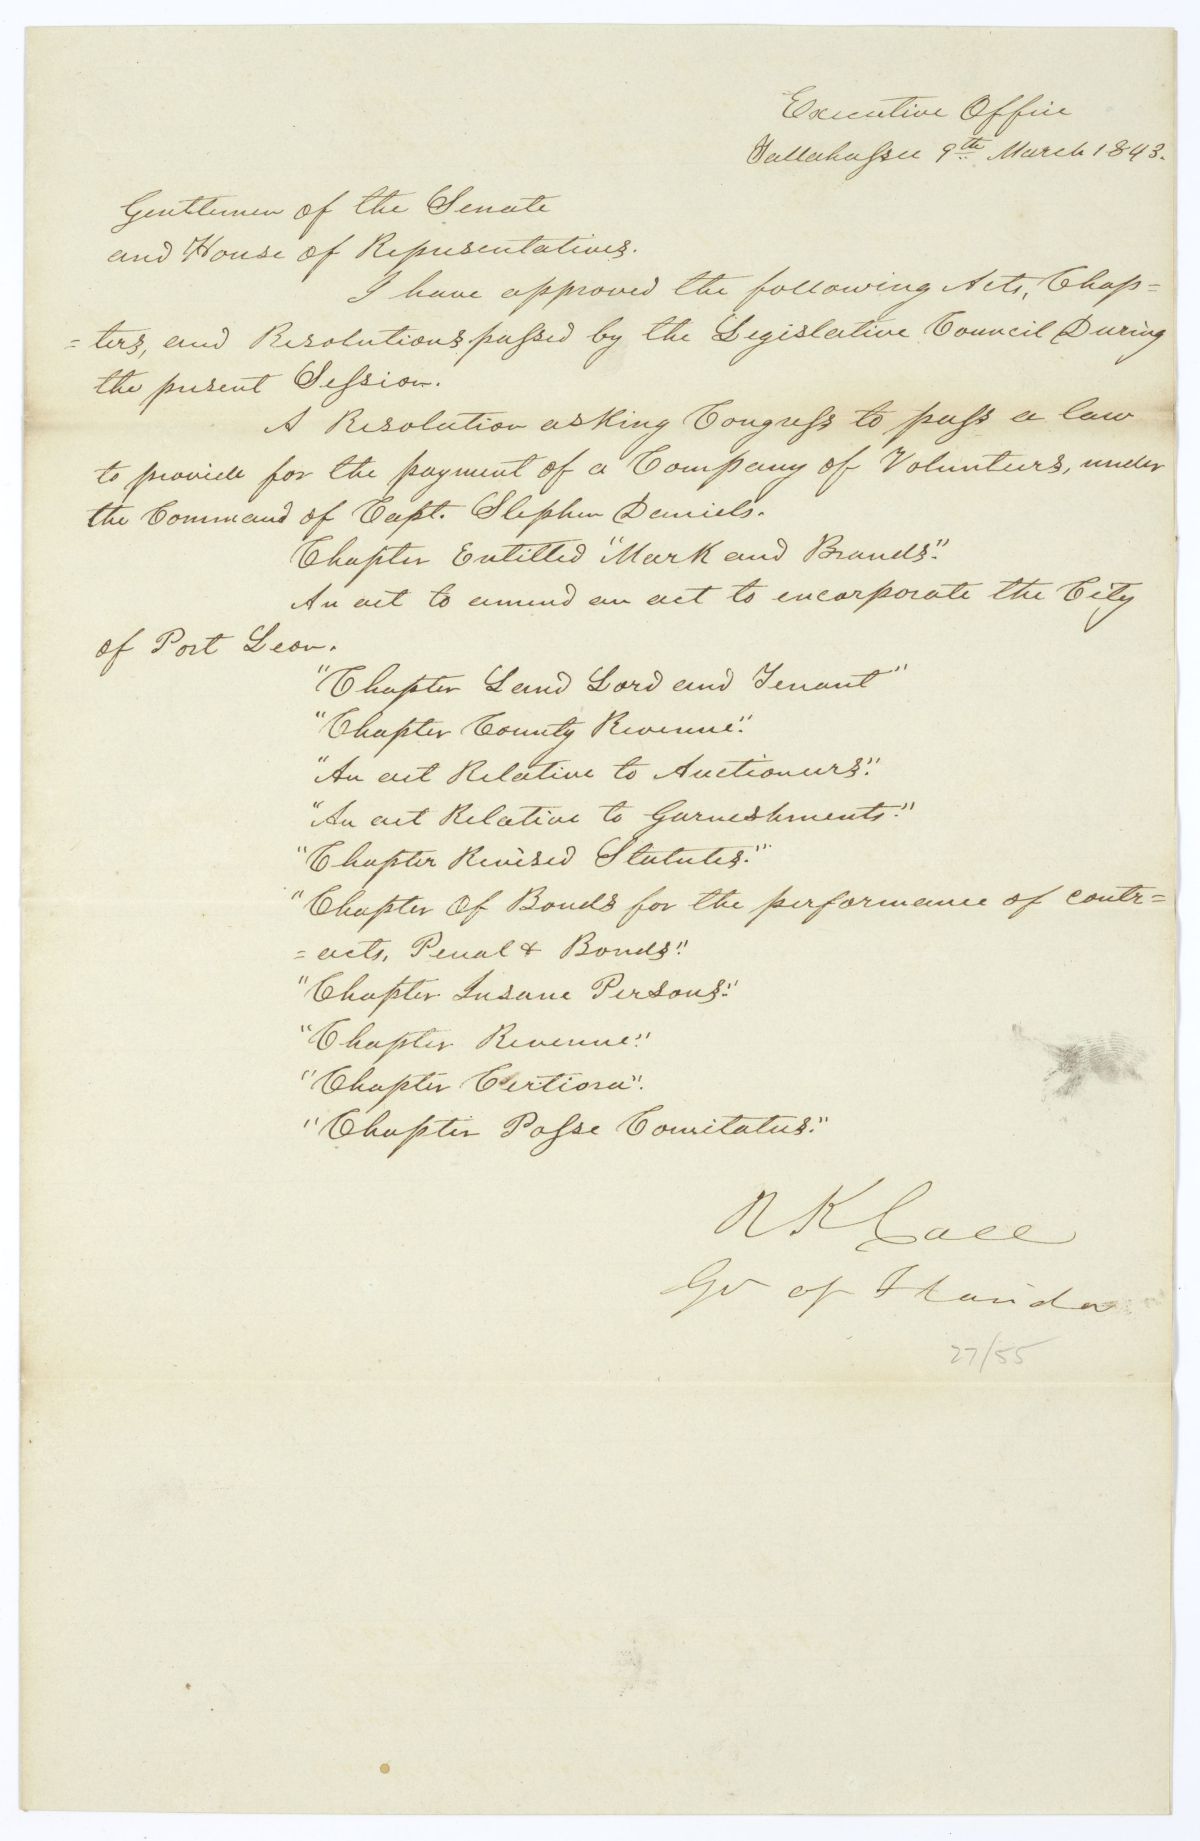 Executive Office
Tallahassee 9th March 1843.
Gentlemen of the Senate
and House of Representatives.
I have approved the following Acts, Chap=
=ters, and Resolutions passed by the Legislative Council During
the present Session.
A Resolution asking Congress to pass a law
to provide for the payment of a Company of Volunteers, under
the Command of Capt. Stephen Daniels.
Chapter Entitled "Mark and Brands".
An act to amend an act to encorporate the City
of Port Leon.
"Chapter Land Lord and Tenant"
"Chapter County Revenue".
"An act Relative to Auctioneers."
"An act Relative to Garneshments."
"Chapter Revised Statutes."
"Chapter Of Bonds for the performance of contr=
=acts, Penal & Bonds".
"Chapter Insane Persons."
"Chapter Revenue."
"Chapter Certiora".
"Chapter Posse Comitatus."
R K Call
Gv of Florida
27/55